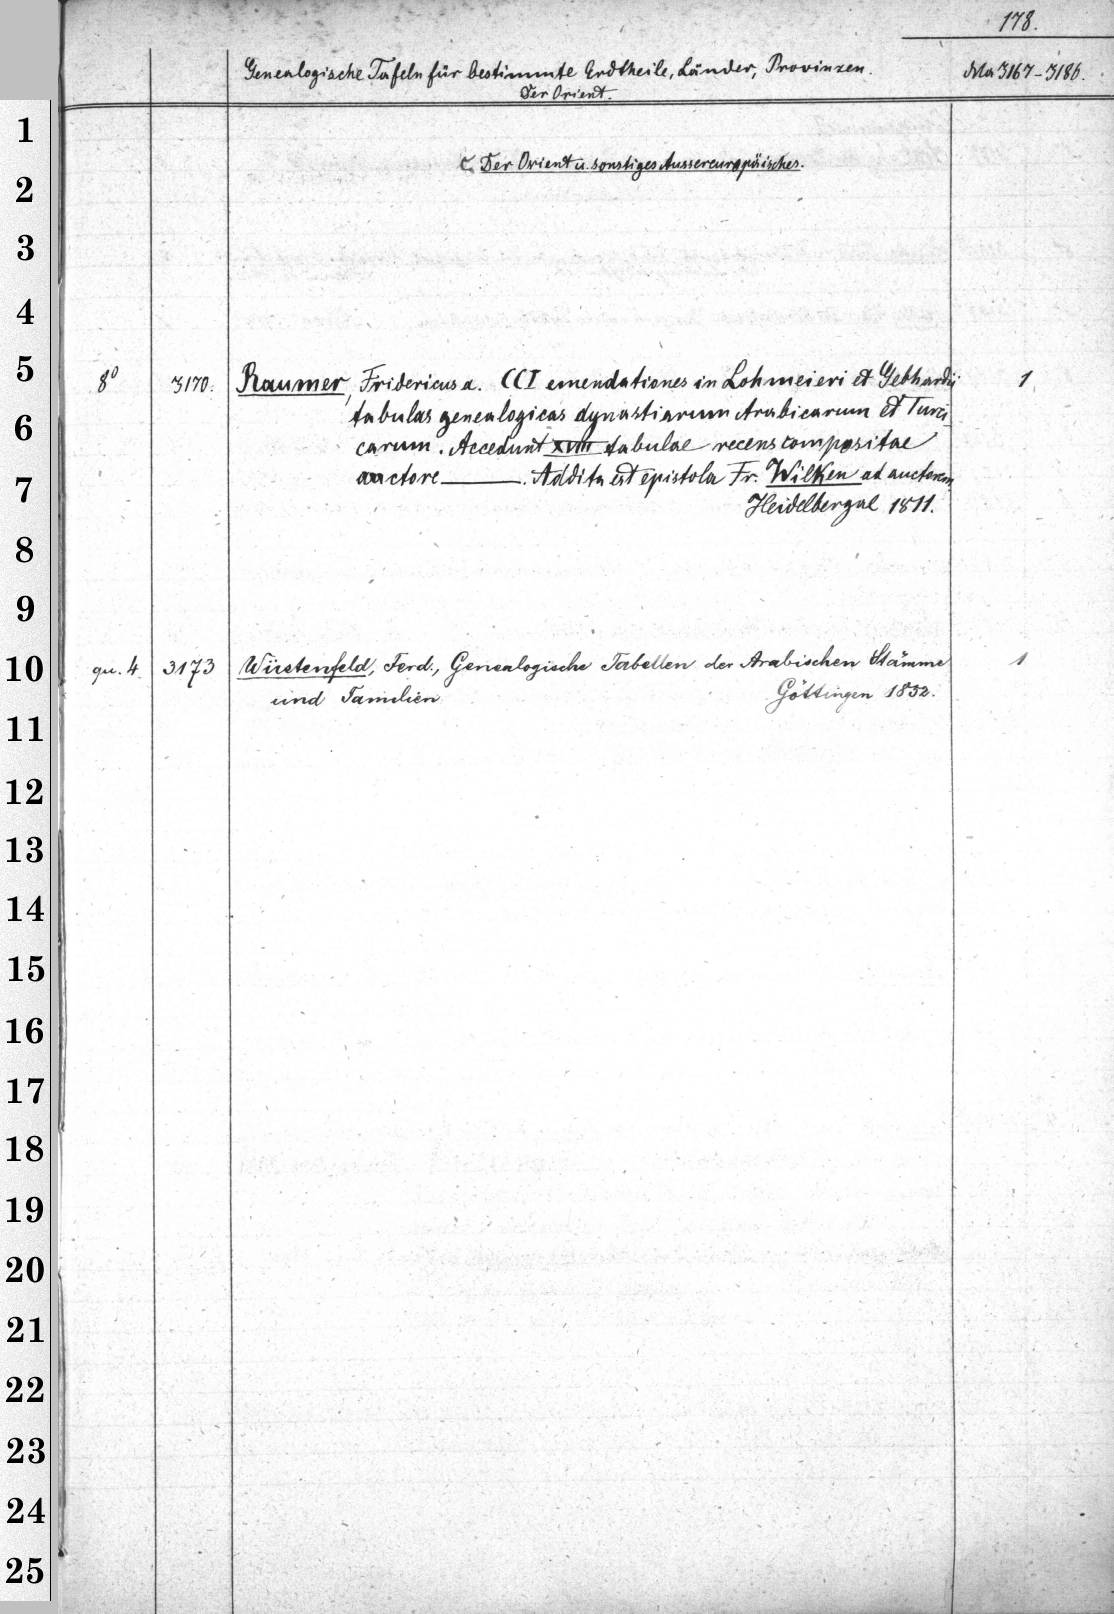 178.
Genealogische Tafeln für bestimmte Erdtheile, Länder, Provinzen.
Ma 3167-3186.
Der Orient.
C. Der Orient u. sonstiges Aussereuropäisches.
8° 3170. Raumer, Fridericus a. CCI emendationes in Lohmeieri et Gebhardii 1
tabulas genealogicas dynastiarum Arabicarum et Turci
carum. Accedunt XVIII tabulae recens compositae
auctore ———. Addita est epistola Fr. Wilken ad auctorem
Heidelbergae 1811.
qu. 4. 3173 Wüstenfeld, Ferd., Genealogische Tabellen der Arabischen Stämme 1
und Familien Göttingen 1852.
1
2
3
4
5
6
7
8
9
10
11
12
13
14
15
16
17
18
19
20
21
22
23
24
25